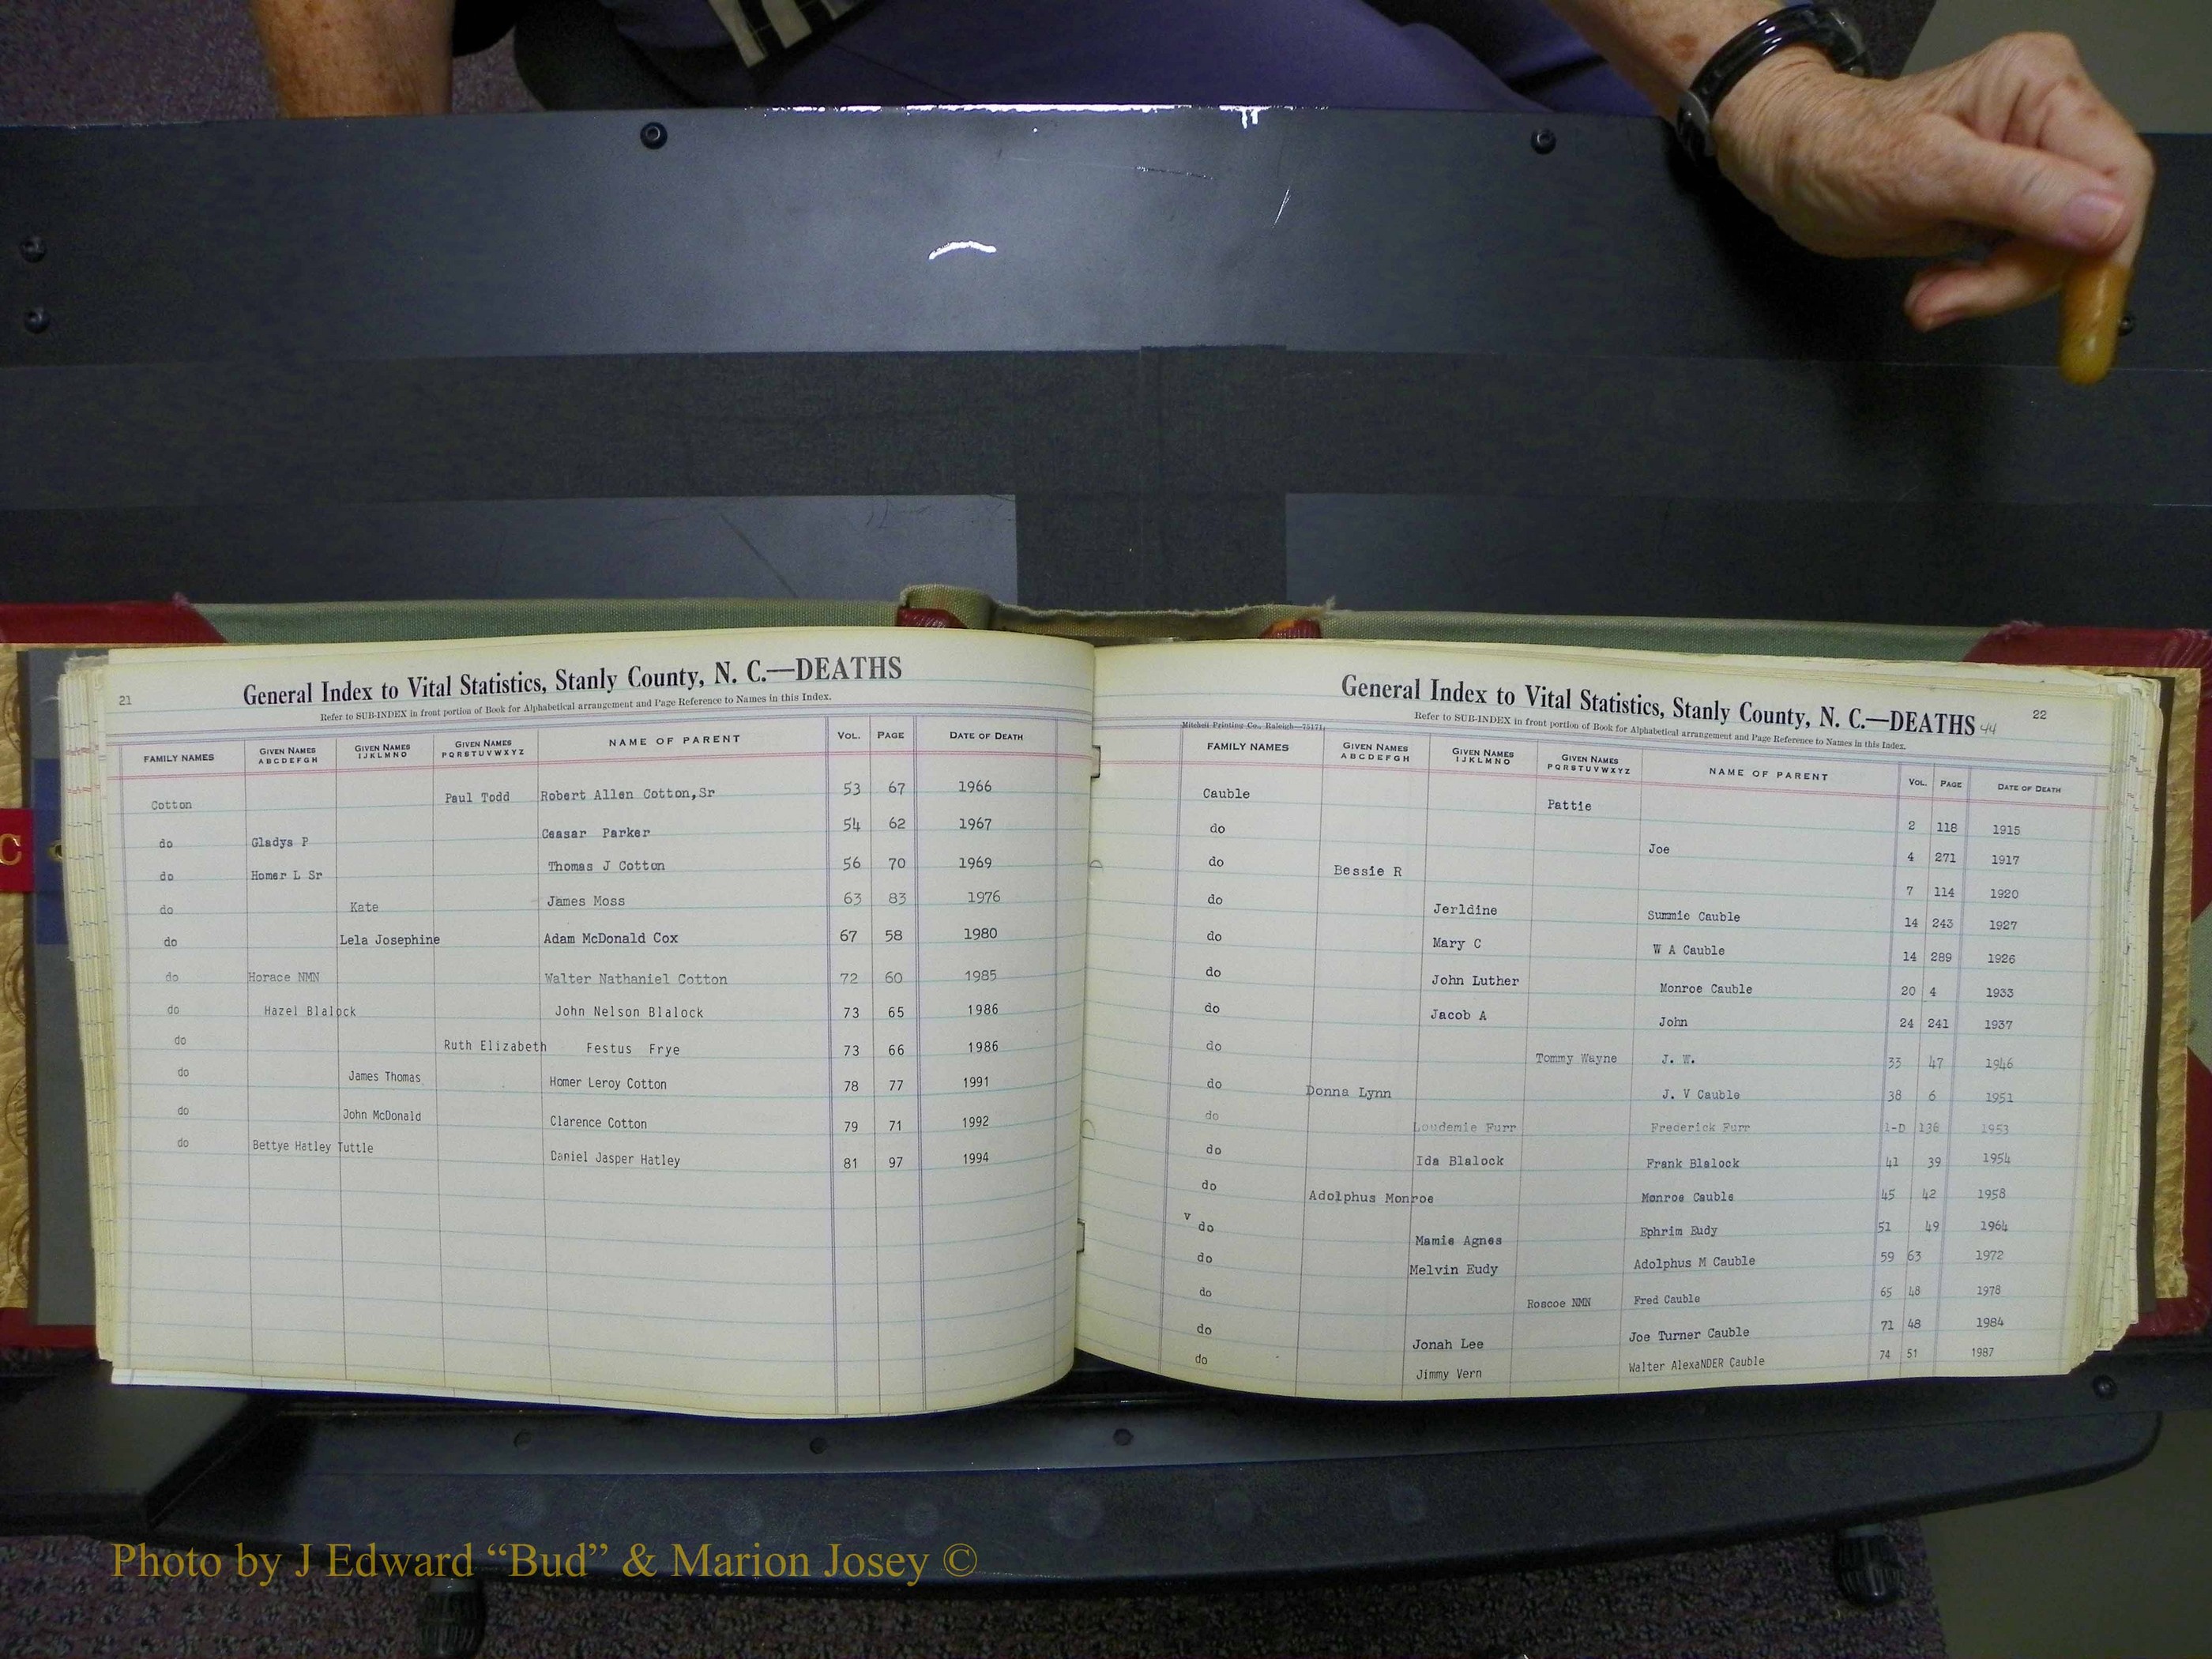 21
General Index to Vital Statistics, Stanly County, N. C.—DEATHS
Refer to SUB-INDEX in front portion of Book for Alphabetical arrangement and Page Reference to Names in this Index.
FAMILY NAMES GIVEN NAMES ABCDEFGH GIVEN NAMES IJKLMNO GIVEN NAMES PQRSTUVWXYZ NAME OF PARENT VOL. PAGE DATE OF DEATH
Cotton Paul Todd Robert Allen Cotton,Sr 53 67 1966
do Gladys P Ceasar Parker 54 62 1967
do Homer L Sr Thomas J Cotton 56 70 1969
do Kate James Moss 63 83 1976
do Lela Josephine Adam McDonald Cox 67 58 1980
do Horace NMN Walter Nathaniel Cotton 72 60 1985
do Hazel Blalock John Nelson Blalock 73 65 1986
do Ruth Elizabeth Festus Frye 73 66 1986
do James Thomas Homer Leroy Cotton 78 77 1991
do John McDonald Clarence Cotton 79 71 1992
do Bettye Hatley Tuttle Daniel Jasper Hatley 81 97 1994
C
General Index to Vital Statistics, Stanly County, N. C.—DEATHS 44
22
Refer to SUB-INDEX in front portion of Book for Alphabetical arrangement and Page Reference to Names in this Index.
Mitchell Printing Co., Raleigh—75171
FAMILY NAMES GIVEN NAMES ABCDEFGH GIVEN NAMES IJKLMNO GIVEN NAMES PQRSTUVWXYZ NAME OF PARENT VOL. PAGE DATE OF DEATH
Cauble Pattie 2 118 1915
do Joe 4 271 1917
do Bessie R 7 114 1920
do Jerldine Summie Cauble 14 243 1927
do Mary C W A Cauble 14 289 1926
do John Luther Monroe Cauble 20 4 1933
do Jacob A John 24 241 1937
do Tommy Wayne J. W. 33 47 1946
do Donna Lynn J. V Cauble 38 6 1951
do Loudemie Furr Frederick Furr 1-D 138 1953
do Ida Blalock Frank Blalock 41 39 1954
do Adolphus Monroe Monroe Cauble 45 42 1958
v do Mamie Agnes Ephrim Eudy 51 49 1964
do Melvin Eudy Adolphus M Cauble 59 63 1972
do Roscoe NMN Fred Cauble 65 48 1978
do Jonah Lee Joe Turner Cauble 71 48 1984
do Jimmy Vern Walter AlexaNDER Cauble 74 51 1987
Photo by J Edward “Bud” & Marion Josey ©